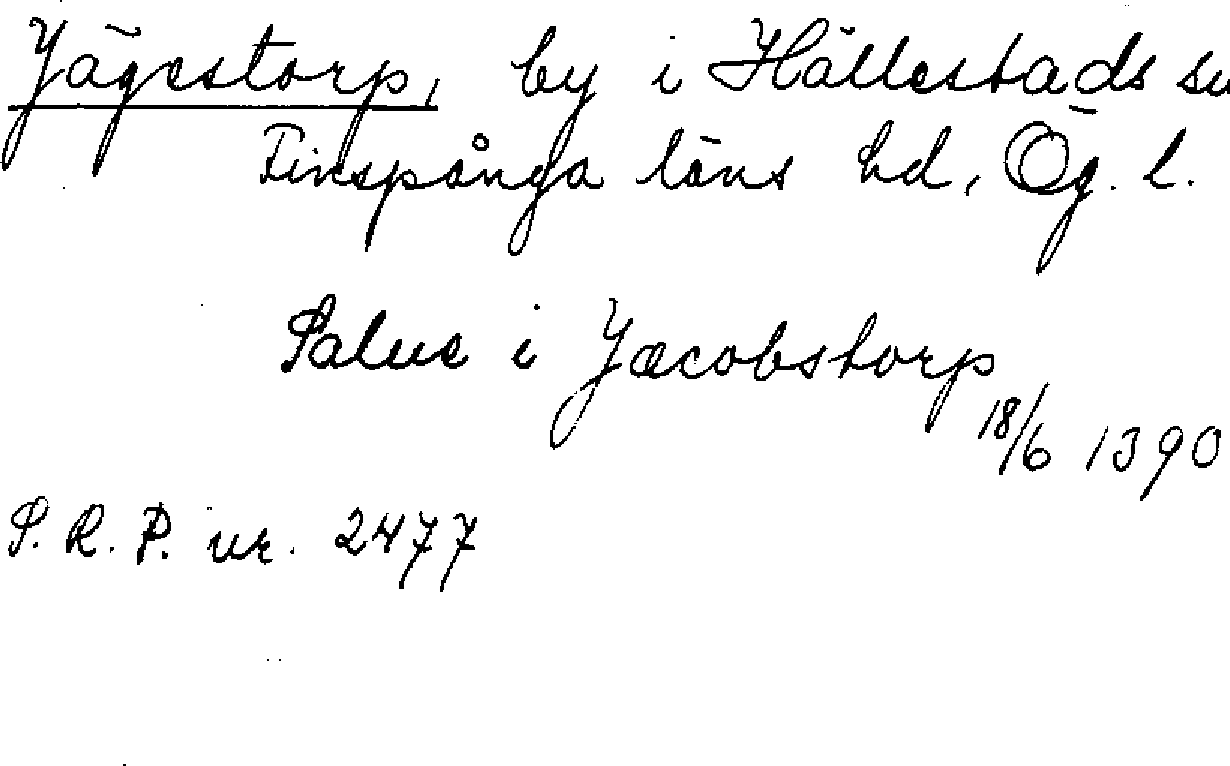 Jägestorp, by i Hällestads sn
Finspånga läns hd, Ög. l.
Palne i Jacobstorp
18/6 1390
S. R. P. nr. 2477